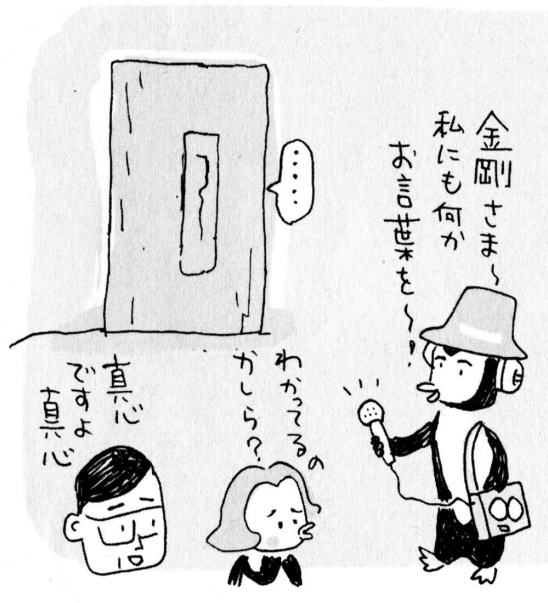 金剛さま〜
私にも何か
お言葉を〜!
‥‥
わかってるの
かしら?
真心
ですよ
真心